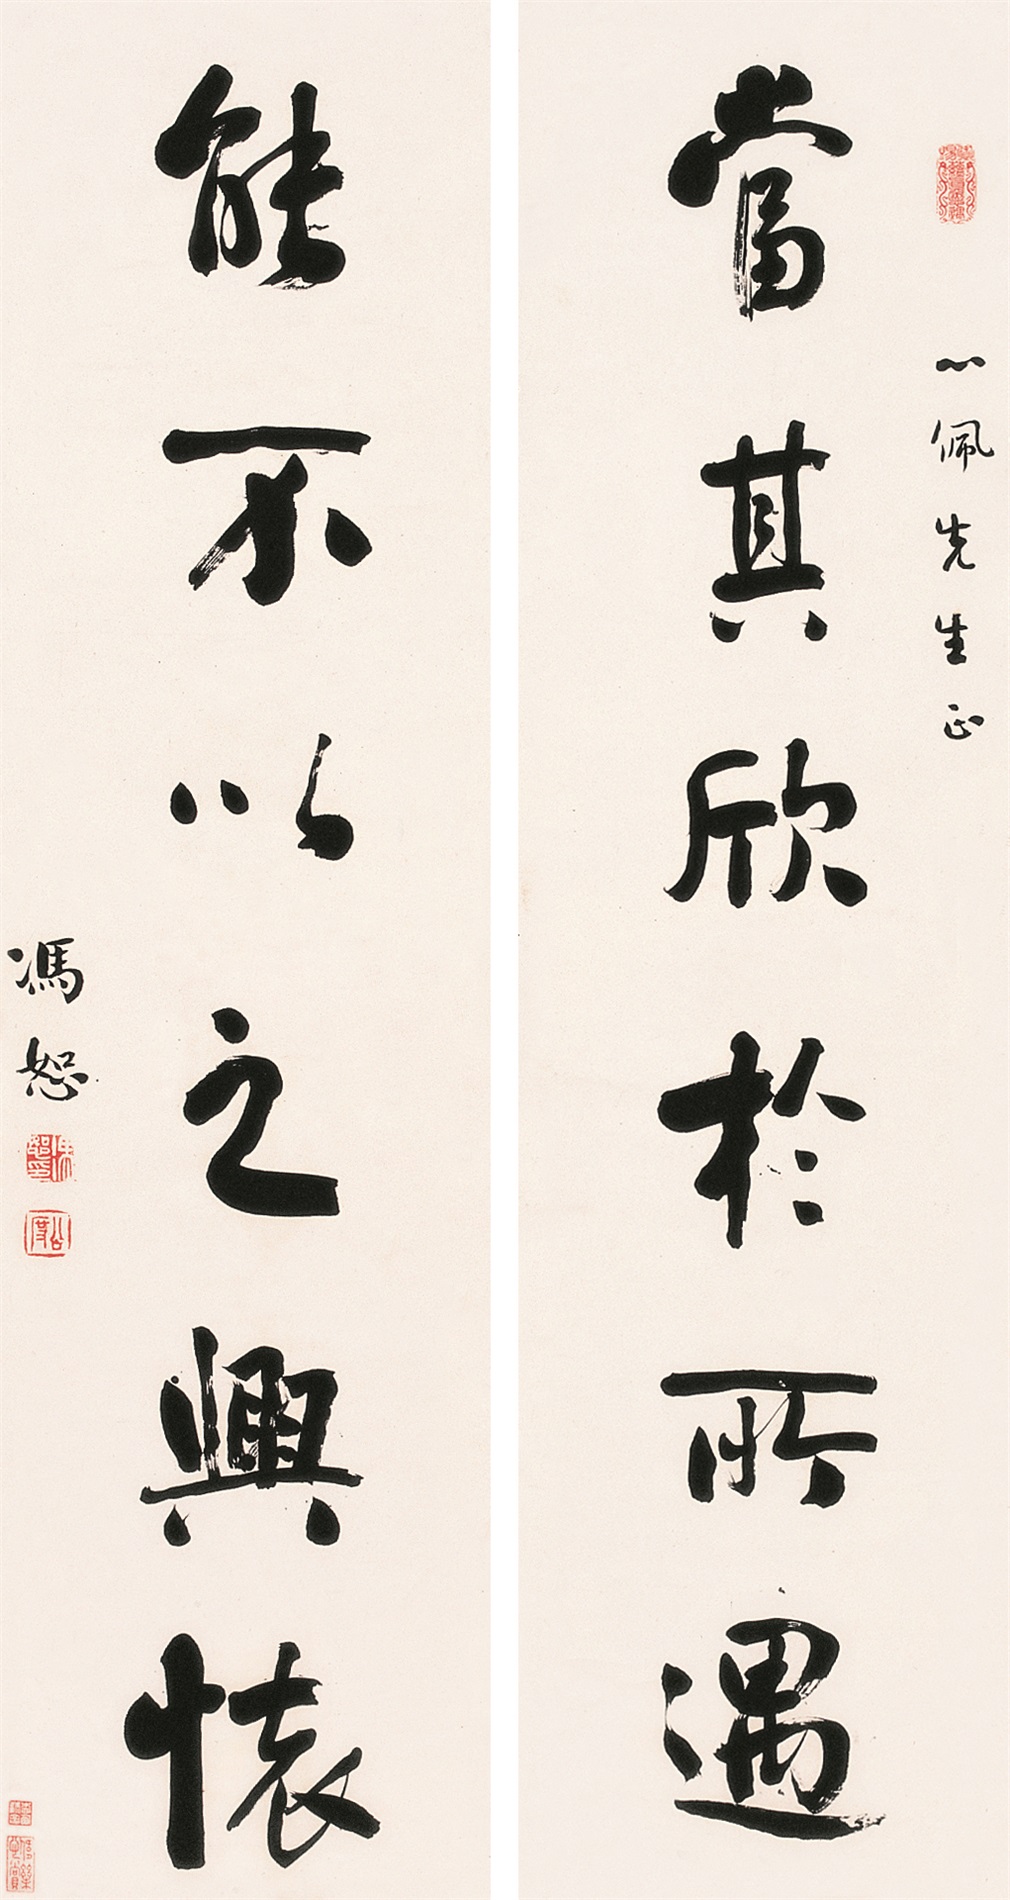 心佩先生正
當其欣於所遇
能不以之興懷
馮恕
公度